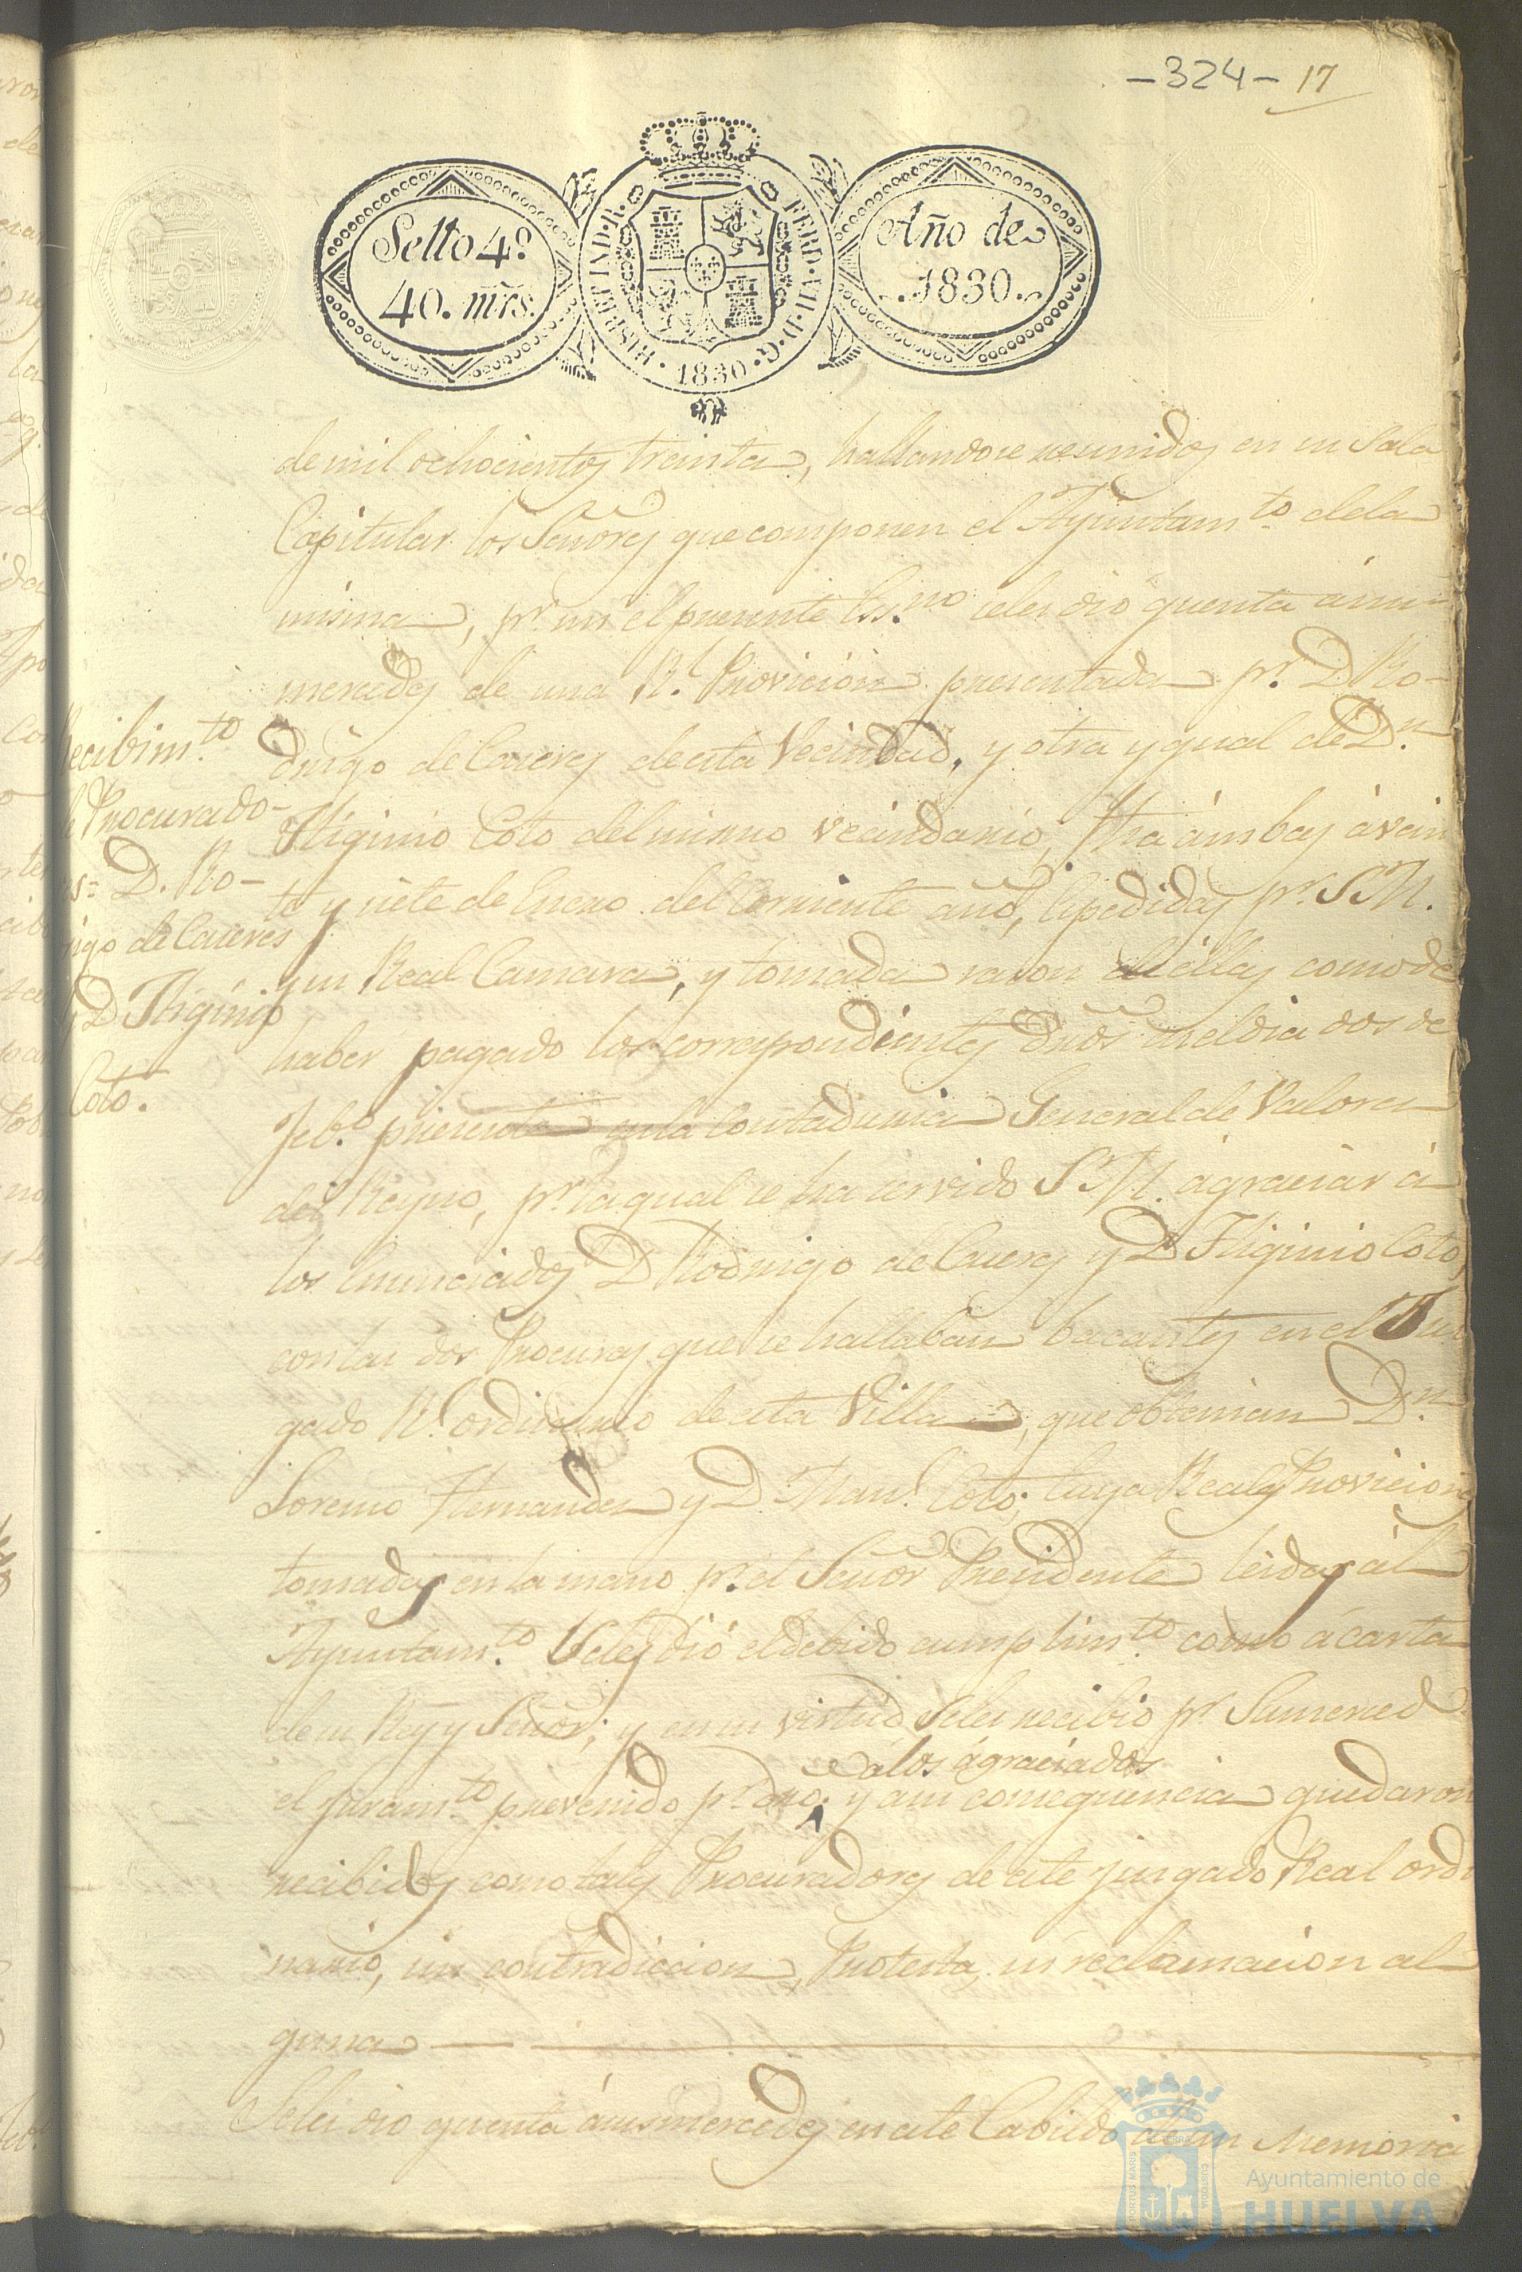 -324- 17
Sello 4º
40. mrs.
HISP. ET IND. R. FERD. VII. D. G. 1830
Año de
1830.
de mil ochocientos treinta, hallandose reunidos en su Sala
Capitular los Señores que componen el Ayuntam.to dela
misma, pr. mi el presente Ess.no seles dio quenta ásus
mercedes de una Rl. Provición presentada pr. D Ro-
drigo de Caceres deesta Vecindad, y otra ygual de Dn.
Higinio Coto del mismo vecindario, fha ámbas ávein
te y siete de Enero del Corriente año, Expedidas pr. S.M.
y su Real Camara, y tomada rason de éllas como de
haber pagado los correspondientes dros. en el dia dos de
Feb.o presente en la Contaduria General de Valores
del Reyno, pr. la qual se ha servido S M. ágraciar á
los Enunciados D Rodrigo de Caceres y D Higinio Coto,
con las dos Procuras que se hallaban bacantes en el Juz
gado Rl. ordinario de esta Villa, que obtenian Dn.
Lorenso Hernandes y D. Man.l Coto; Cuyas Reales Proviciones
tomadas en la mano pr. el Señor Presidente leidas ál
Ayuntam.to Seles dió el debido cumplim.to como á carta
de su Rey y Señor; y en su virtud Seles recibio pr. Sumerced
álos ágraciados
el juram.to prevenido pr. dro. y asu consequencia quedaron
recibidos como tales Procuradores de este jusgado Real ordi
nario, sin contradiccion, Protesta, ni reclamacion al
guna
Seles dio quenta ásus mercedes en este Cabildo de un Memoria
Recibim.to
de Procurado-
res= D. Ro-
drigo de Caceres
y D Higinio
Coto.
PORTUS MARIS ET TERRAE CUSTODIA
Ayuntamiento de
HUELVA